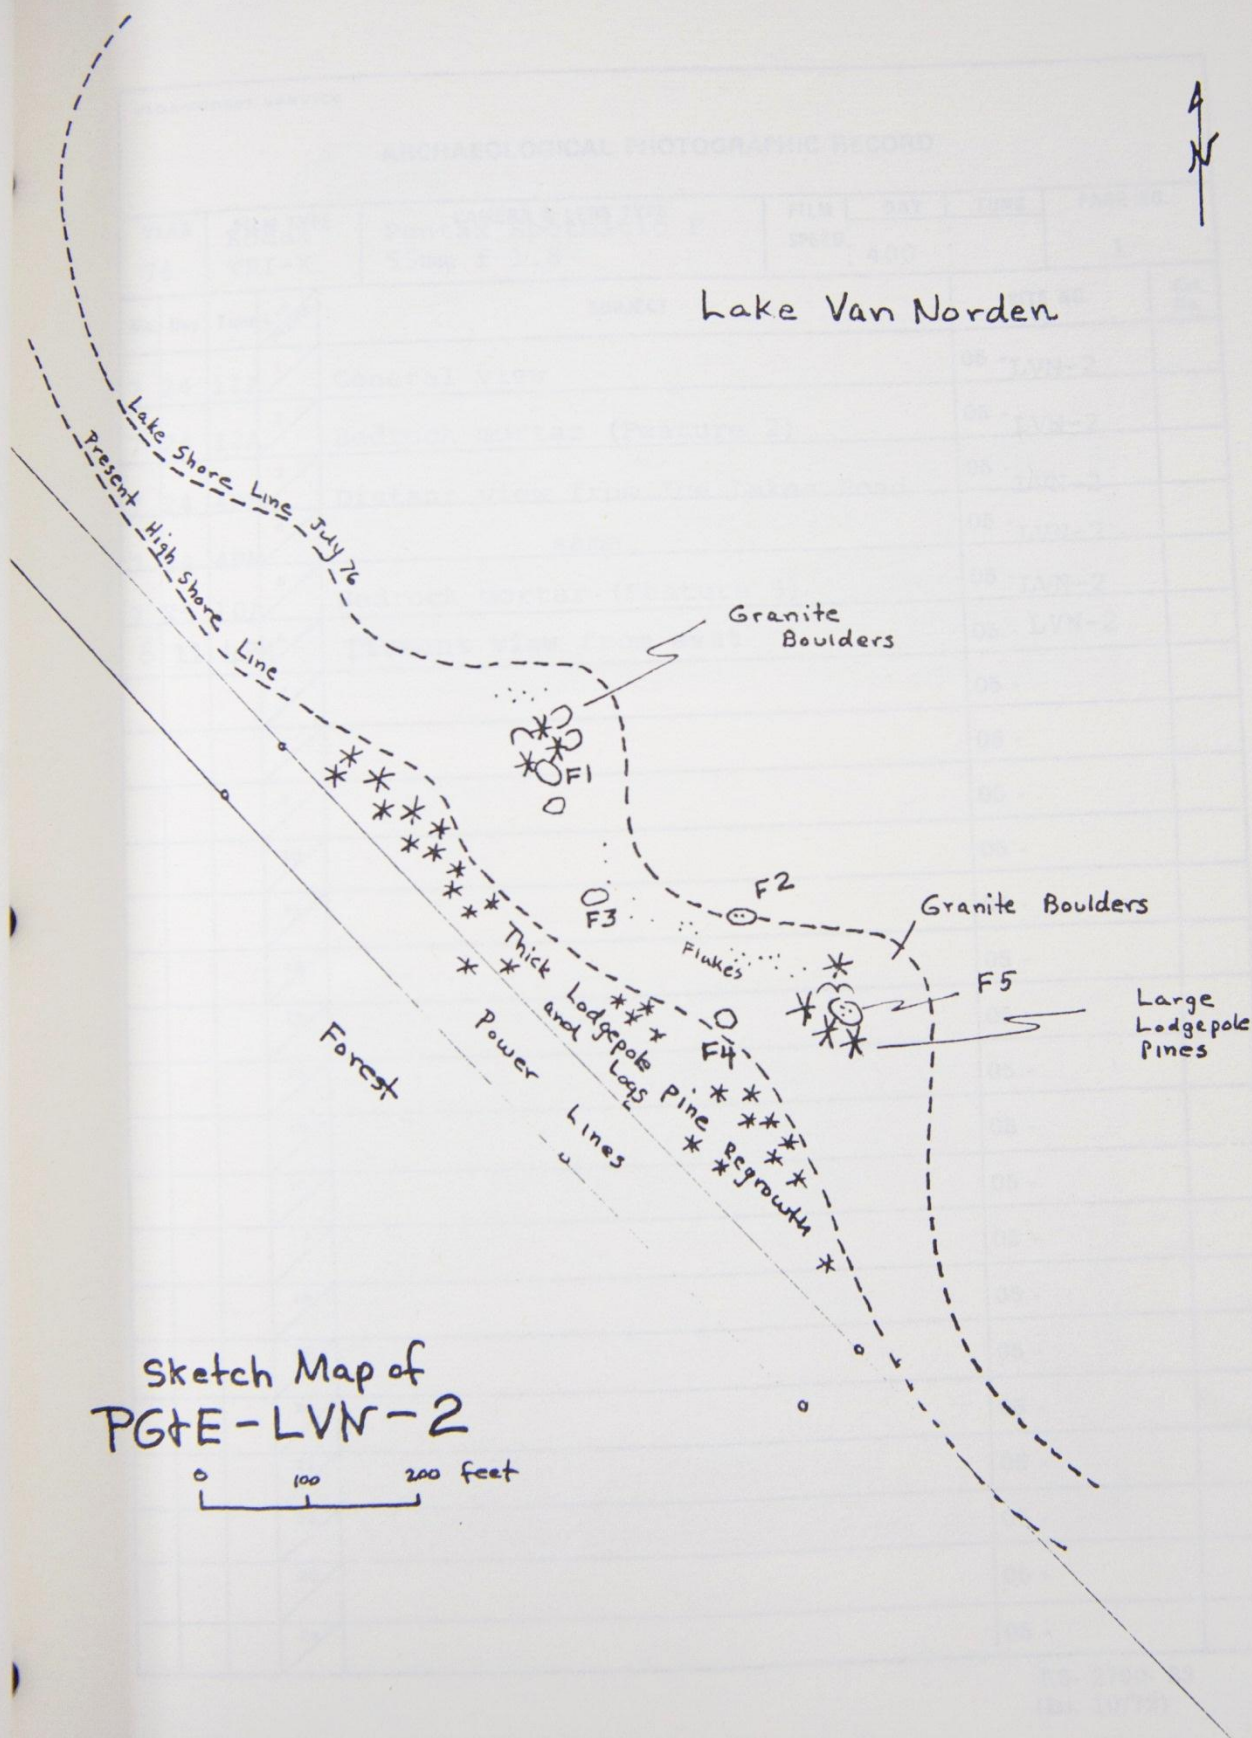 N
Lake Van Norden
Lake Shore Line July 76
Present High Shore Line
Granite
Boulders
F1
F2
F3
Flukes
Granite Boulders
F5
Large
Lodgepole
Pines
F4
Thick Lodgepole Pine Regrowth
and Logs
Power Lines
Forest
Sketch Map of
PG&E-LVN-2
0 100 200 feet
ARCHAEOLOGICAL PHOTOGRAPHIC RECORD